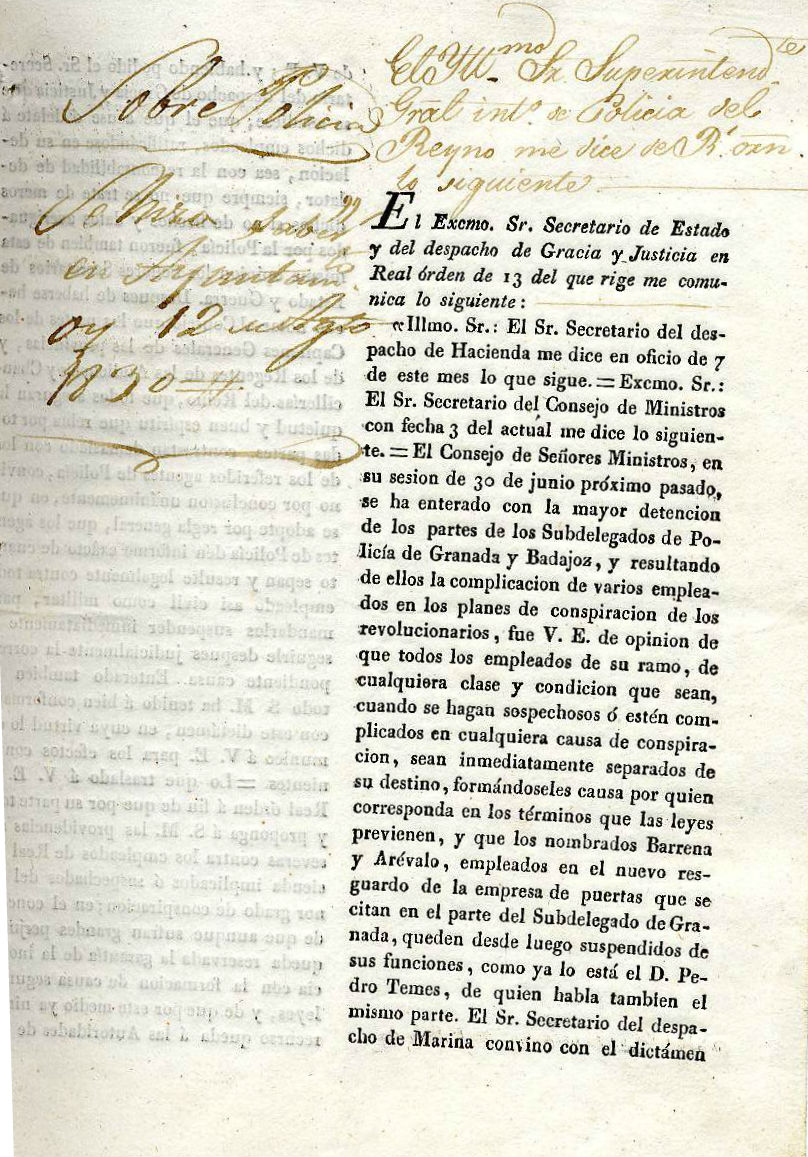 Sobre Policia
El Yll.mo Sr. Superintend.te
Gral int.o de Policia del
Reyno me dice de R.l orn.
lo siguiente
en Ayuntam.
oy 12 de Agto
1830
El Excmo. Sr. Secretario de Estado
y del despacho de Gracia y Justicia en
Real órden de 13 del que rige me comu-
nica lo siguiente:
«Illmo. Sr.: El Sr. Secretario del des-
pacho de Hacienda me dice en oficio de 7
de este mes lo que sigue. = Excmo. Sr.:
El Sr. Secretario del Consejo de Ministros
con fecha 3 del actual me dice lo siguien-
te. = El Consejo de Señores Ministros, en
su sesion de 30 de junio próximo pasado,
se ha enterado con la mayor detencion
de los partes de los Subdelegados de Po-
licía de Granada y Badajoz, y resultando
de ellos la complicacion de varios emplea-
dos en los planes de conspiracion de los
revolucionarios, fue V. E. de opinion de
que todos los empleados de su ramo, de
cualquiera clase y condicion que sean,
cuando se hagan sospechosos ó estén com-
plicados en cualquiera causa de conspira-
cion, sean inmediatamente separados de
su destino, formándoseles causa por quien
corresponda en los términos que las leyes
previenen, y que los nombrados Barrena
y Arévalo, empleados en el nuevo res-
guardo de la empresa de puertas que se
citan en el parte del Subdelegado de Gra-
nada, queden desde luego suspendidos de
sus funciones, como ya lo está el D. Pe-
dro Temes, de quien habla tambien el
mismo parte. El Sr. Secretario del despa-
cho de Marina convino con el dictámen